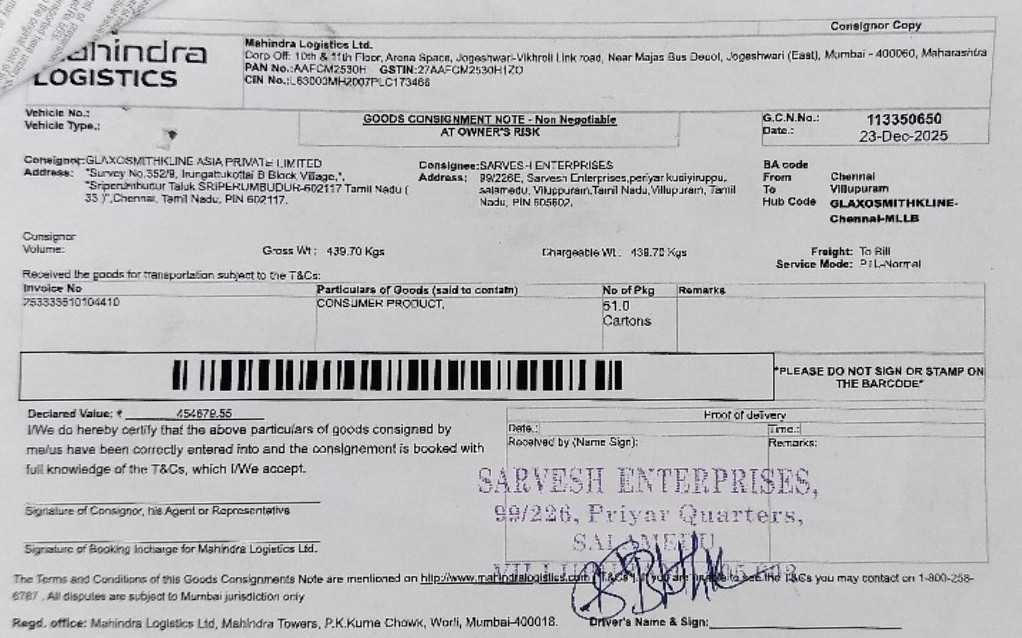 Consignor Copy
Mahindra Logistics Ltd.
Corp Off: 10th & 11th Floor, Arena Space, Jogeshwari-Vikhroli Link road, Near Majas Bus Depot, Jogeshwari (East), Mumbai - 400060, Maharashtra
PAN No.:AAFCM2530H GSTIN:27AAFCM2530H1ZO
CIN No.:L63000MH2007PLC173466
mahindra
LOGISTICS
Vehicle No.:
Vehicle Type.:
GOODS CONSIGNMENT NOTE - Non Negotiable
AT OWNER'S RISK
G.C.N.No.: 113350650
Date.: 23-Dec-2025
Consignor:GLAXOSMITHKLINE ASIA PRIVATE LIMITED
Address: "Survey No.352/9, Irungattukottai B Block Village,",
"Sriperumbudur Taluk SRIPERUMBUDUR-602117 Tamil Nadu (
33 )",Chennai, Tamil Nadu, PIN 602117.
Consignee:SARVESH ENTERPRISES
Address: 99/226E, Sarvesh Enterprises,periyar kudiyiruppu,
salamedu, Viluppuram,Tamil Nadu,Villupuram, Tamil
Nadu, PIN 605602.
BA code
From Chennai
To Villupuram
Hub Code GLAXOSMITHKLINE-
Chennai-MLLB
Consignor
Volume:
Gross Wt: 439.70 Kgs
Chargeable Wt.: 439.70 Kgs
Freight: To Bill
Service Mode: PTL-Normal
Received the goods for transportation subject to the T&Cs:
Invoice No Particulars of Goods (said to contain) No of Pkg Remarks
253333510104410 CONSUMER PRODUCT, 51.0
Cartons
*PLEASE DO NOT SIGN OR STAMP ON
THE BARCODE*
Declared Value: ₹ 454679.55
I/We do hereby certify that the above particulars of goods consigned by
me/us have been correctly entered into and the consignement is booked with
full knowledge of the T&Cs, which I/We accept.
Signature of Consignor, his Agent or Representative
Signature of Booking Incharge for Mahindra Logistics Ltd.
Proof of delivery
Date.: Time.:
Received by (Name Sign): Remarks:
SARVESH ENTERPRISES,
99/226, Priyar Quarters,
SALAMEDU
The Terms and Conditions of this Goods Consignments Note are mentioned on http://www.mahindralogistics.com (T&Cs ). If you are unable to see the T&Cs you may contact on 1-800-258-
6787 . All disputes are subject to Mumbai jurisdiction only
Regd. office: Mahindra Logistics Ltd, Mahindra Towers, P.K.Kurne Chowk, Worli, Mumbai-400018.
Driver's Name & Sign: